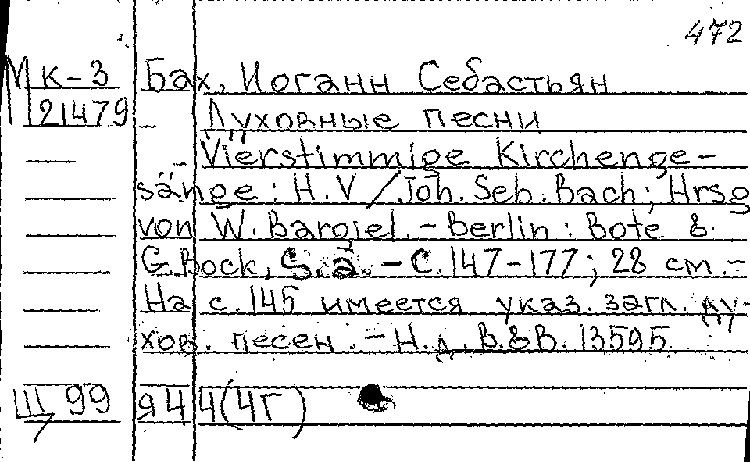 472
МК-3 Бах, Иоганн Себастьян
21479 Духовные песни
Vierstimmige Kirchenge-
sänge: H. V / Joh. Seb. Bach; Hrsg
von W. Bargiel. - Berlin: Bote &
G. Bock, S. a. - С. 147-177; 28 см. -
На с. 145 имеется указ. загл. ду-
хов. песен. - Н. д. B. & B. 13595
Щ 99 Я 44(4Г)
7